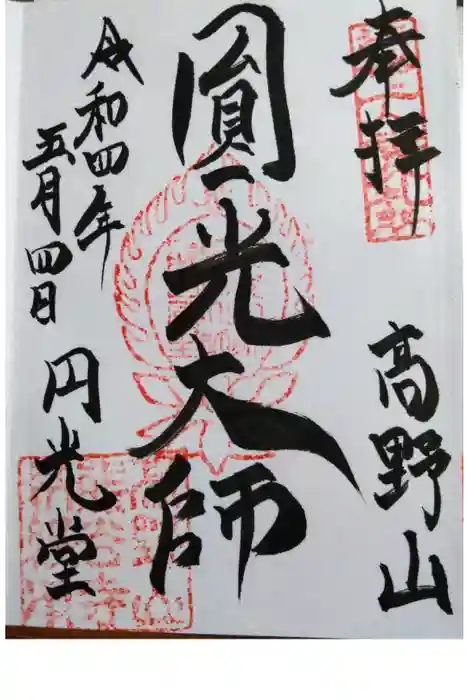 奉拝
高野山
圓光大師
令和四年
五月四日
円光堂